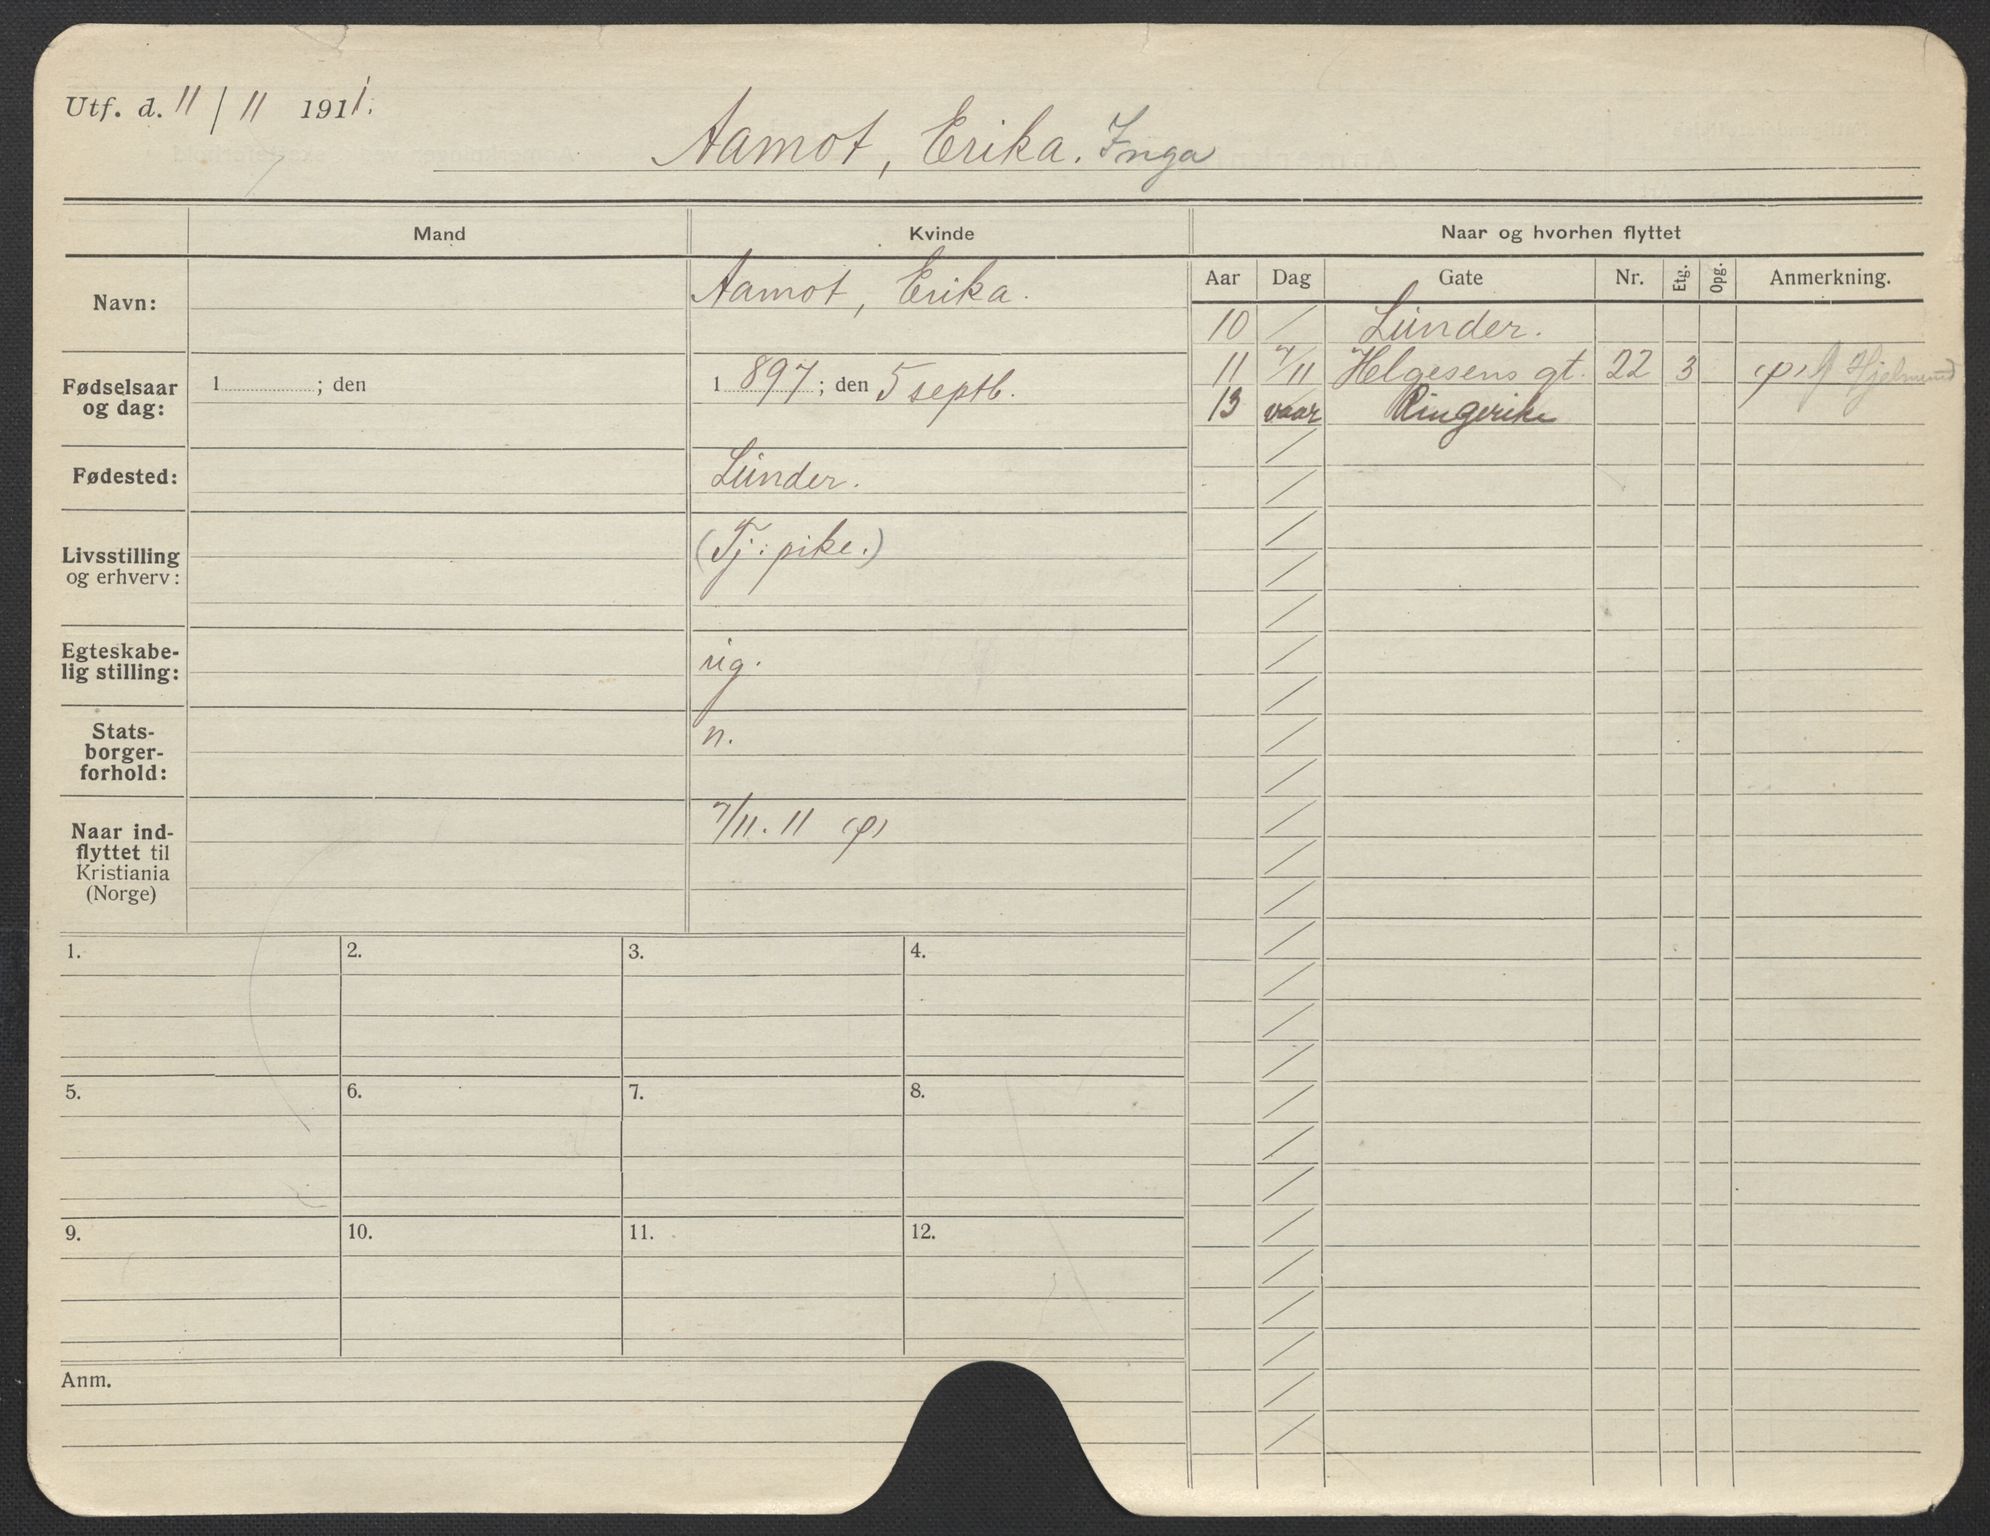 Utf. d. 11/11 1911.
Aamot, Erika. Inga
Mand Kvinde Naar og hvorhen flyttet
Navn: Aamot, Erika.
Fødselsaar og dag: 1 ; den 1 897 ; den 5 septb.
Fødested: Lunder.
Livsstilling og erhverv: (Tj. pike.)
Egteskabe-
lig stilling: ug.
Stats-
borger-
forhold: n.
Naar ind-
flyttet til
Kristiania
(Norge) 7/11. 11 (p)
Aar Dag Gate Nr. Etg. Opg. Anmerkning.
10 / Lunder.
11 7/11 Helgesens gt. 22 3 (p) Hjelmund
13 vaar Ringerike
1. 2. 3. 4.
5. 6. 7. 8.
9. 10. 11. 12.
Anm.